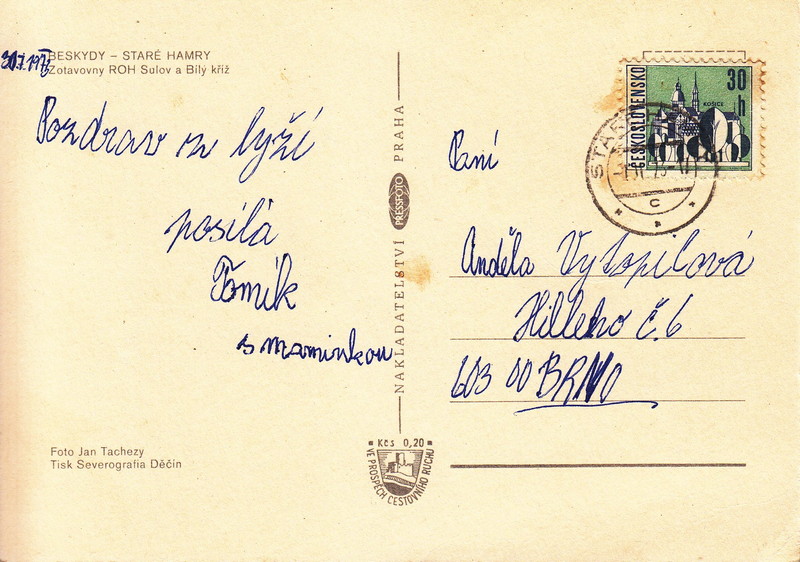 BESKYDY – STARÉ HAMRY
Zotavovny ROH Sulov a Bílý kříž
Pozdrav z lyží
posílá
Tomík
s maminkou
Foto Jan Tachezy
Tisk Severografia Děčín
NAKLADATELSTVÍ PRESSFOTO PRAHA
Kčs 0,20
VE PROSPĚCH CESTOVNÍHO RUCHU
ČESKOSLOVENSKO
30 h
KOŠICE
C
Paní
Anděla Vytopilová
Hilleho č. 6
603 00 BRNO